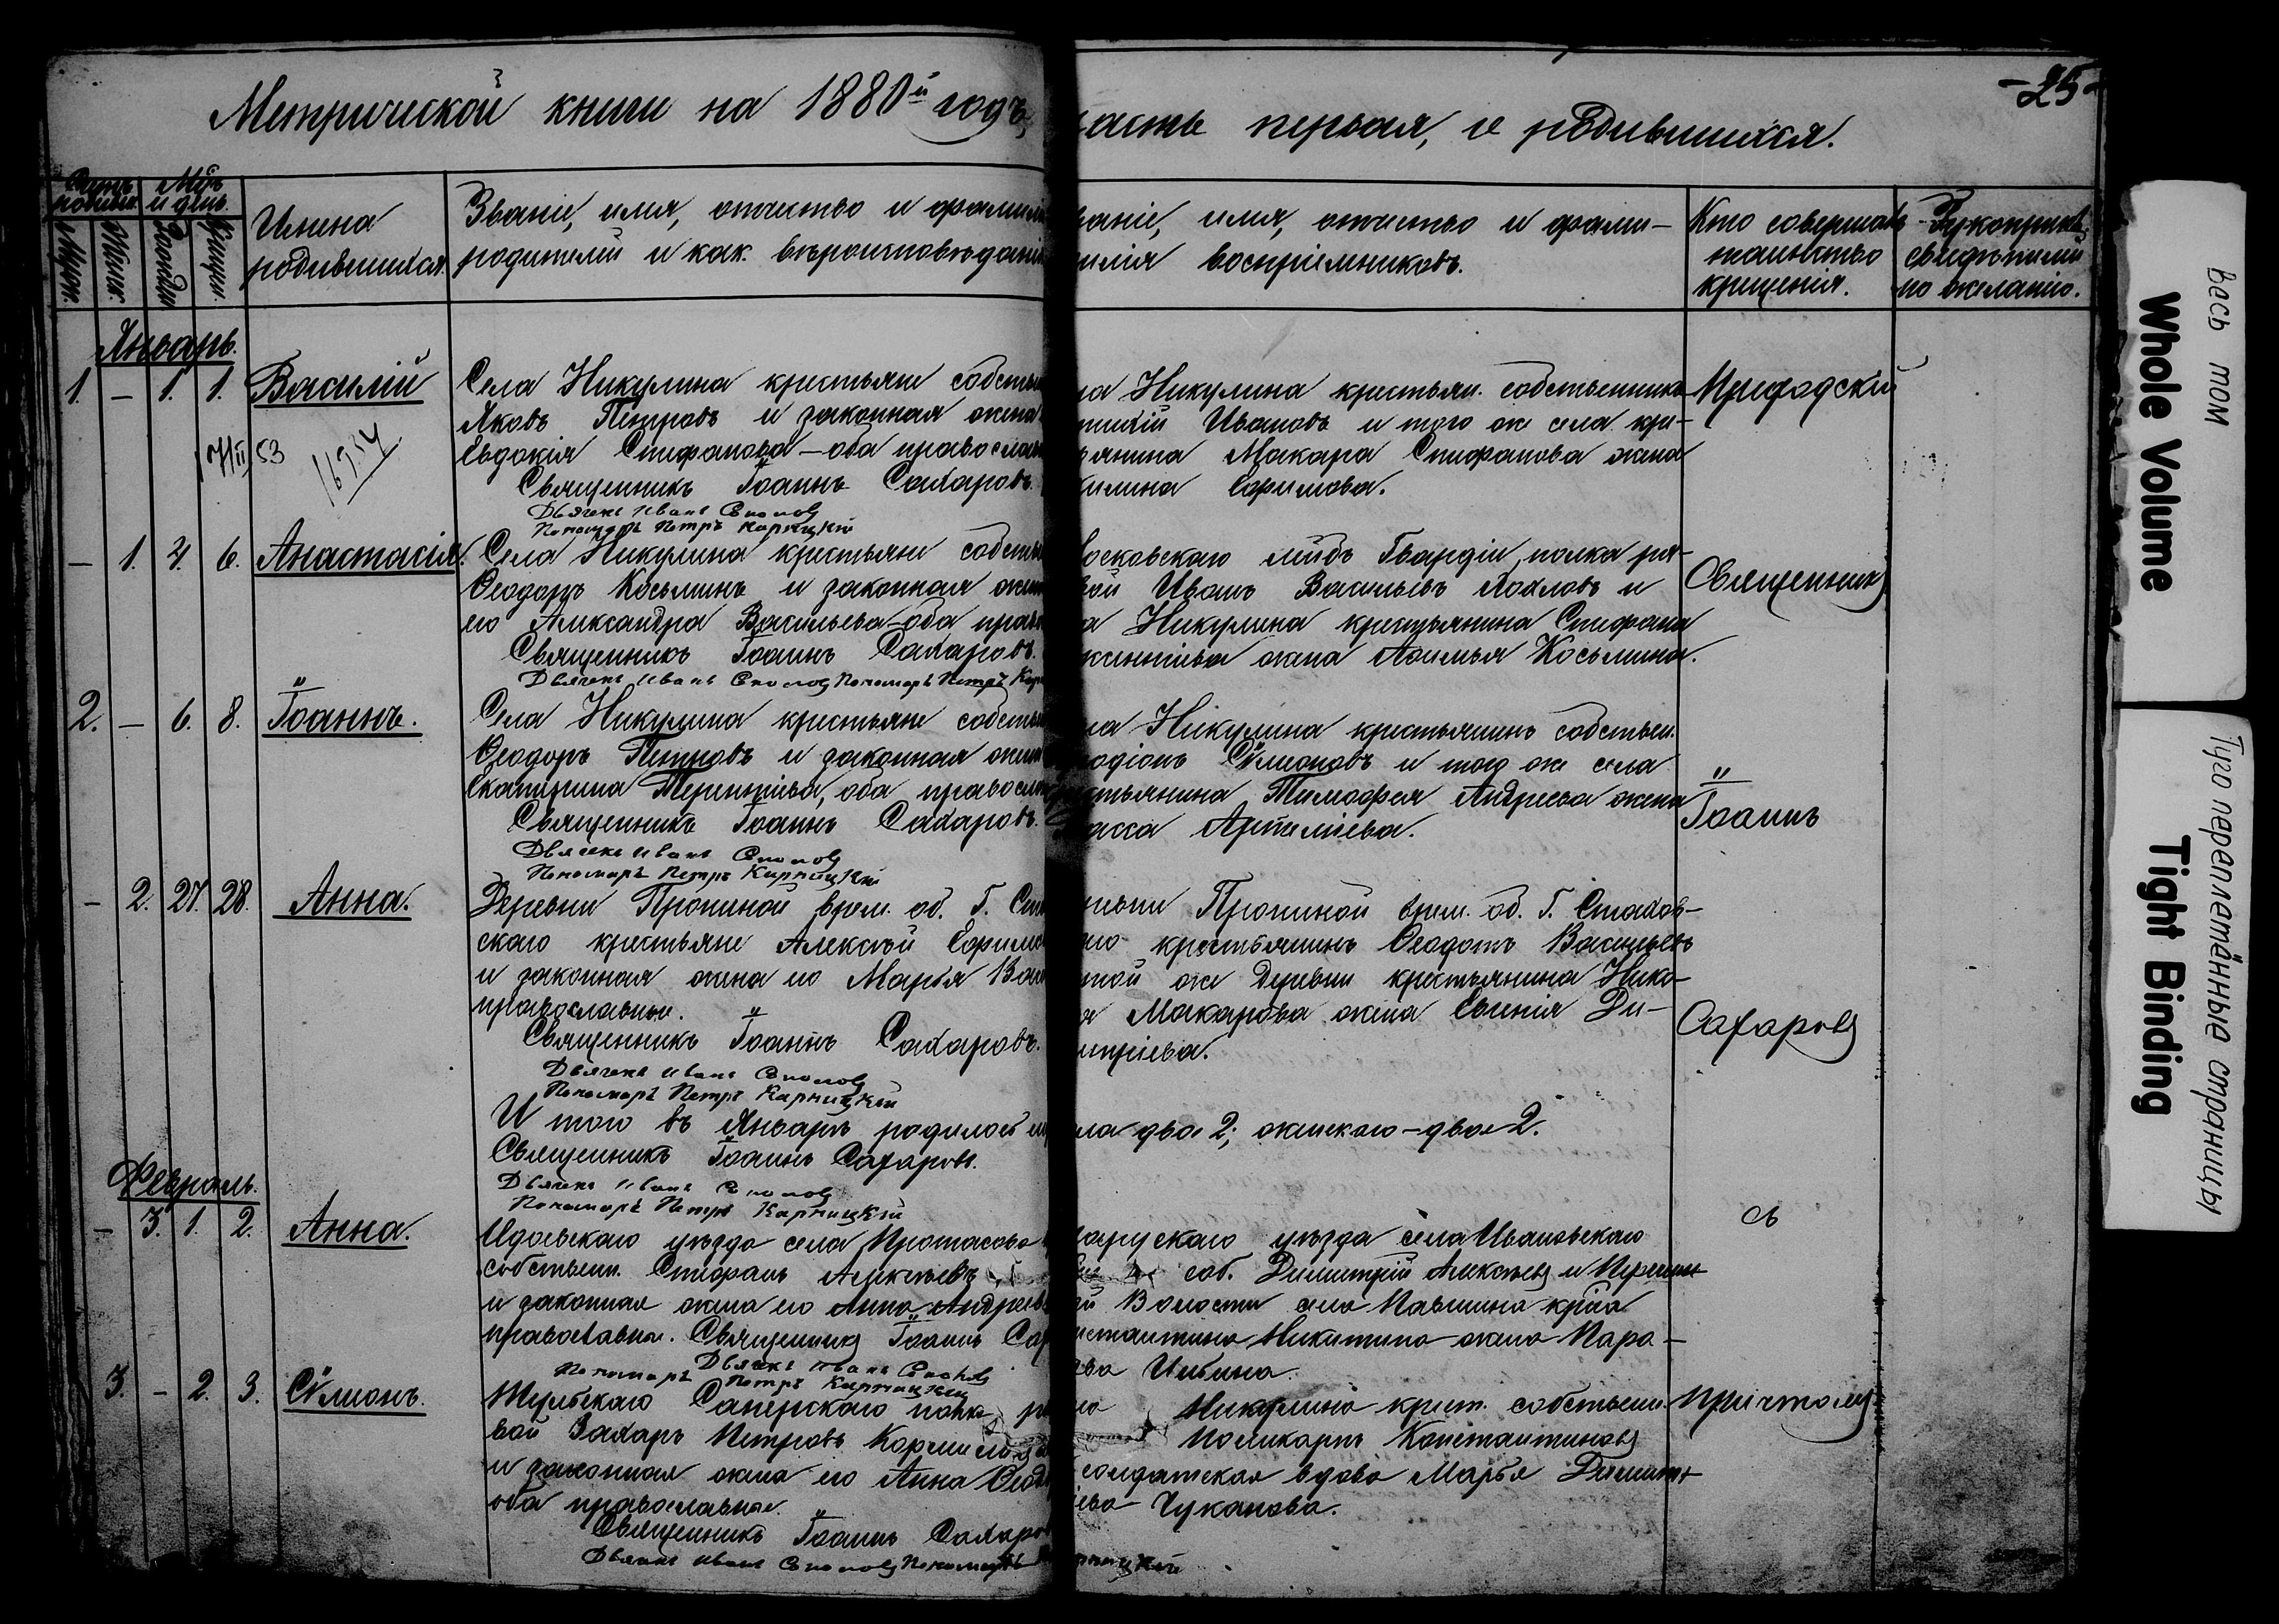 Метрической книги на 1880й годъ,
часть первая, о родившихся.
-25-
Счетъ родивш.
Мѣс. и день.
Мужск.
Женск.
Рожден.
Крещен.
Имена
родившихся.
Званіе, имя, отчество и фамилі
родителей и как. вѣроисповѣданія
ваніе, имя, отчество и фами-
милія воспріемниковъ.
Кто совершалъ
таинство
крещенія.
Рукоприкл.
свидѣтелей
по желанію.
Январь.
1. - 1. 1. Василій
7/II 53
Села Никулина крестьяне собствен
Яковъ Петровъ и законная жена
Евдокія Стефанова - оба православ
Священникъ Іоаннъ Сахаровъ.
Дьячекъ Иванъ
Пономарь Петръ Карницкій
ла Никулина крестьян. собственника
Ивановъ и того же села кре-
стьянина Макара Стефанова жена
Ефимова.
Приходскій
- 1. 4. 6. Анастасія.
Села Никулина крестьяне собств
Ѳеодоръ Косьминъ и законная жена
его Александра Васильева оба прав
Священникъ Іоаннъ Сахаровъ.
Дьячекъ Иванъ Пономарь Петръ Кар
осковскаго лейбъ Гвардіи полка ря-
вой Иванъ Васильевъ и
ла Никулина крестьянина Стефана
жена Косьмина.
Священникъ
2. - 6. 8. Іоаннъ.
Села Никулина крестьяне собств
Ѳеодоръ Петровъ и законная жена
Екатерина Терентіева, оба правосл
Священникъ Іоаннъ Сахаровъ.
Дьячекъ Иванъ
Пономарь Петръ Карницкій
ла Никулина крестьянинъ собствен.
одіонъ Сѵмеоновъ и того же села
стьянина Тимоѳея Андреева жена
Артеміева.
Іоаннъ
- 2. 27. 28. Анна.
Деревни Прониной врем. об. Г. Ста
скаго крестьяне Алексѣй Ефимо
и законная жена его Марья Ва
православные.
Священникъ Іоаннъ Сахаровъ.
Дьячекъ Иванъ
Пономарь Петръ Карницкій
ревни Прониной врем. об. Г. Стахов-
го крестьянинъ Ѳеодотъ Васильевъ
той же деревни крестьянина Нико-
я Макарова жена Евгенія Ди-
митріева.
Сахаровъ
И того въ Январѣ родилось м
ла два 2; женскаго - двое 2.
Священникъ Іоаннъ Сахаровъ.
Дьячекъ Иванъ
Пономарь Петръ Карницкій
Февраль.
- 3. 1. 2. Анна.
уѣзда села Протасова
собствен. Стефанъ Алексѣевъ
и законная жена его Анна Андреев
православные. Священникъ Іоаннъ Сах
Дьячекъ Иванъ
Пономарь Петръ Карницкій
арускаго уѣзда села Ивановскаго
соб. Димитрій Алексѣевъ и
й Волости села Павшина кр-на
нстантина Никитина жена Пара-
ева Ильина.
съ
3. - 2. 3. Сѵмеонъ.
Саперскаго полка ря
вой Захаръ Петровъ
и законная жена его Анна Ѳеод
оба православные.
Священникъ Іоаннъ Сахаров
Дьячекъ Иванъ Пономарь
рницкій
ла Никулина крест. собствен.
Поликарпъ Константиновъ
солдатская вдова Марья Димит-
іева Чуканова.
Причтомъ
весь том
Whole Volume
Туго переплетённые страницы
Tight Binding